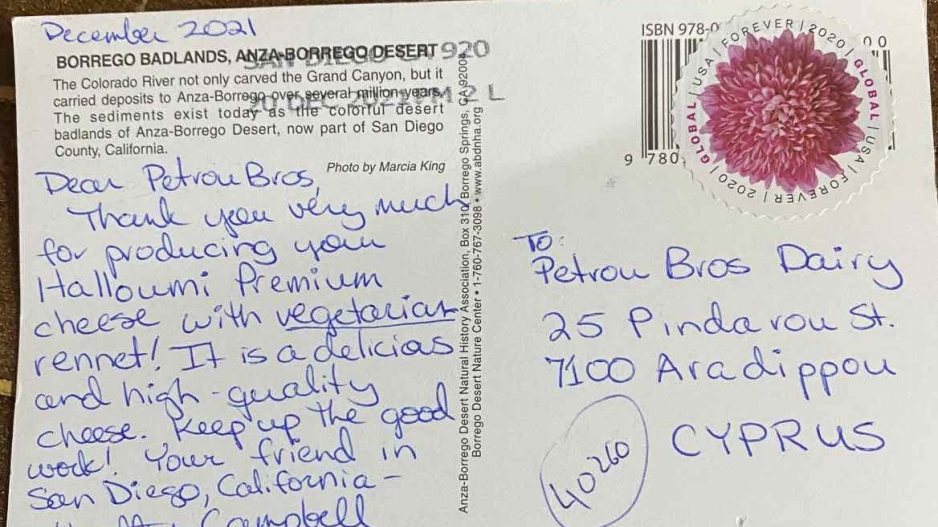 December 2021
BORREGO BADLANDS, ANZA-BORREGO DESERT
SAN DIEGO CA 920
The Colorado River not only carved the Grand Canyon, but it
carried deposits to Anza-Borrego over several million years.
20 DEC 2021 PM 2 L
The sediments exist today as the colorful desert
badlands of Anza-Borrego Desert, now part of San Diego
County, California.
Photo by Marcia King
Dear Petrou Bros,
Thank you very much
for producing your
Halloumi Premium
cheese with vegetarian
rennet! It is a delicias
and high-quality
cheese. Keep up the good
work! Your friend in
San Diego, California -
Campbell
Anza-Borrego Desert Natural History Association, Box 310, Borrego Springs, CA 92004
Borrego Desert Nature Center • 1-760-767-3098 • www.abdnha.org
ISBN 978-0
0 0
9 780
USA | FOREVER | 2020 | GLOBAL | USA | FOREVER | 2020 | GLOBAL
To:
Petrou Bros Dairy
25 Pindarou St.
7100 Aradippou
CYPRUS
40260